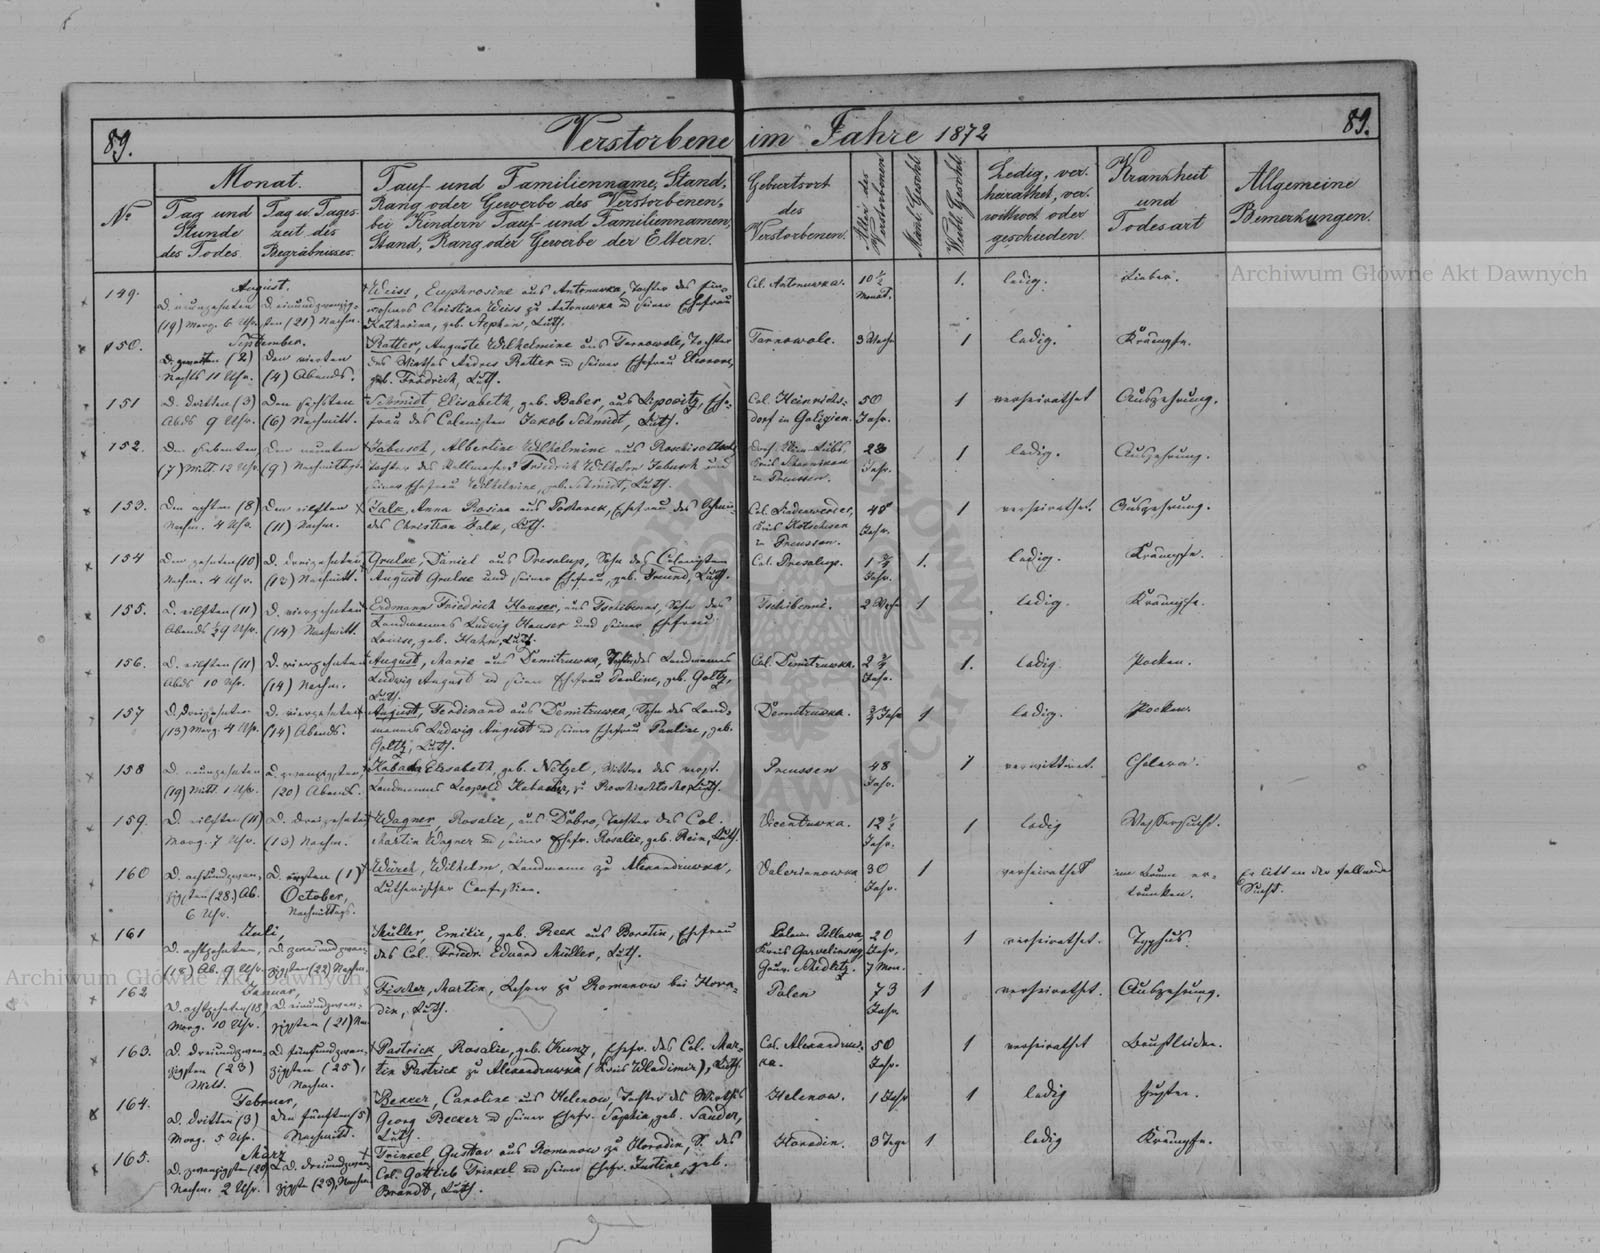 89.
Verstorbene im Jahre 1872
89.
№
Monat.
Tag und
Stunde
des Todes.
Tag u. Tages-
zeit des
Begräbnisses.
Tauf- und Familienname, Stand,
Rang oder Gewerbe des Verstorbenen-
bei Kindern Tauf- und Familiennamen,
Stand, Rang oder Gewerbe der Eltern.
Geburtsort
des
Verstorbenen.
Alter des
Verstorbenen
Mänl. Geschl.
Weibl. Geschl.
Ledig, ver-
heirathet, ver-
wittwet oder
geschieden.
Krankheit
und
Todesart
Allgemeine
Bemerkungen.
149.
August.
D. neunzehnten
(19) Morg. 6 Uhr
D. einundzwanzig-
sten (21) Nachm.
Weiss, Euphrosine aus Antonuwka, Tochter des Ein-
wohners Christian Weiss zu Antonuwka u seiner Ehefrau
Katharina, geb. Stephan, Luth.
Col. Antonuwka.
10 ½
Monat.
1.
ledig.
Fieber.
150.
September.
D. zweiten (2)
Nachts 11 Uhr.
Den vierten
(4) Abends.
Ratter, Auguste Wilhelmine aus Tarnowole, Tochter
des Wirthes Andres Ratter u seiner Ehefrau Eleonore,
geb. Friedrich, Luth.
Tarnowole.
3 Woch.
1
ledig.
Krämpfe.
151
D. dritten (3)
Abds 9 Uhr.
Den sechsten
(6) Nachmitt.
Schmidt Elisabeth, geb. Baber, aus Lipovitz, Ehe-
frau des Colonisten Jakob Schmidt, Luth.
Col. Heinrichs-
dorf in Galizien.
50
Jahr.
1
verheirathet
Auszehrung.
152.
Den siebenten
(7) Mitt. 12 Uhr
Den neunten
(9) Nachmittags.
Jabusch, Albertine Wilhelmine aus
Tochter des Friedrich Wilhelm Jabusch und
seiner Ehefrau Wilhelmine, geb. Schmidt, Luth.
in Preussen.
Jahr.
1
ledig.
Auszehrung.
153.
Den achten (8)
Nachm. 4 Uhr.
Den eilften
(11) Nachm.
Zalk, Anna Rosina aus Ehefrau des
des Christian Zalk, Luth.
Kreis
in Preussen.
48
Jahr.
1
verheirathet.
Auszehrung.
154
Den zehnten (10)
Nachm. 4 Uhr.
D. dreizehnten
(13) Nachmitt.
Grulke, Daniel aus Presalup, Sohn des Colonisten
August Grulke und seiner Ehefrau, geb. Freund, Luth.
Col. Presalup.
1 ¾
Jahr.
1.
ledig.
Krämpfe.
155.
D. eilften (11)
Abends ½9 Uhr.
D. vierzehnten
(14) Nachmitt.
Erdmann Friedrich Hauser, aus Tschibenni, Sohn des
Landmannes Ludwig Hauser und seiner Ehefrau
Louise, geb. Hahn, Luth.
Tschibenni.
2 Woch
1
ledig.
Krämpfe.
156.
D. eilften (11)
Abds 10 Uhr.
D. vierzehnten
(14) Nachm.
August, Marie aus Demitruwka, Tochter des Landmannes
Ludwig August u seiner Ehefrau Pauline, geb. Goltz,
Luth.
Col. Demitruwka.
2 ¾
Jahr.
1.
ledig.
Pocken.
157
D. dreizehnten
(13) Morg. 4 Uhr.
D. vierzehnten
(14) Abends.
August, Ferdinand aus Demitruwka, Sohn des Land-
mannes Ludwig August u seiner Ehefrau Pauline, geb.
Goltz, Luth.
Demitruwka.
¾ Jahr
1
ledig.
Pocken.
158
D. neunzehnten
(19) Mitt. 1 Uhr.
D. zwanzigsten,
(20) Abends.
Elisabeth, geb. Netzel, Wittwe des verst.
Landmannes Leopold zu Luth.
Preussen
48
Jahr.
1
verwittwet.
Cholera.
159.
D. eilften (11)
Morg. 7 Uhr.
D. dreizehnten
(13) Nachm.
Wagner, Rosalie, aus Dobro, Tochter des Col.
Martin Wagner u seiner Ehefr. Rosalie, geb. Rein, Luth.
Vicentuwka.
12 ½
Jahr.
1
ledig
Wassersucht.
160
D. achtundzwan-
zigsten (28.) Ab.
6 Uhr.
D. ersten (1)
October,
Nachmittags.
Würch, Wilhelm, Landmann zu Alexandruwka,
Lutherischer Confession.
Valerianowka
30
Jahr.
1
verheirathet
im Brunn er-
trunken.
Er litt an der fallende
Sucht.
161
Juli,
D. achtzehnten,
(18) Ab. 9 Uhr.
D. zweiundzwan-
zigsten (22) Nachm.
Müller, Emilie, geb. Reek aus Boratin, Ehefrau
des Col. Friedr. Eduard Müller, Luth.
Polen Pillawa
Kreis Garvolinsky
Gouv. Schedletz.
20
Jahr,
7 Mon.
1
verheirathet.
Typhus.
162
Januar,
D. achtzehnten (18)
Morg. 10 Uhr.
D. einundzwan-
zigsten (21) Na
Fischer, Martin, Lehrer zu Romanow bei Horo-
din, Luth.
Polen
73
Jahr.
1
verheirathet.
Auszehrung.
163.
D. dreiundzwan-
zigsten (23)
Mitt.
D. fünfundzwan-
zigsten (25),
Nachm.
Pastrick, Rosalie, geb. Kunz, Ehefr. des Col. Mar-
tin Pastrick zu Alexandruwka (Kreis Wladimir), Luth.
Col. Alexandruw-
ka.
50
Jahr.
1
verheirathet
Brustleiden.
164.
Februar,
D. dritten (3)
Morg. 5 Uhr.
den fünften (5)
Nachmitt.
Bekker, Caroline aus Helenow, Tochter des Wirthes
Georg Becker u seiner Ehefr. Sophia, geb. Sander,
Luth.
Helenow.
1 Jahr
1
ledig
Husten.
165.
März
D. zwanzigsten (20)
Nachm. 2 Uhr.
D. dreiundzwan-
zigsten (23), Nachm
Trinkel, Gustav aus Romanow zu Horodin, S. des
Col. Gottlieb Trinkel u seiner Ehefr. Justine, geb.
Brandt, Luth.
Horodin.
3 Tage
1
ledig
Krämpfe.
Archiwum Główne Akt Dawnych
Archiwum Główne Akt Dawnych